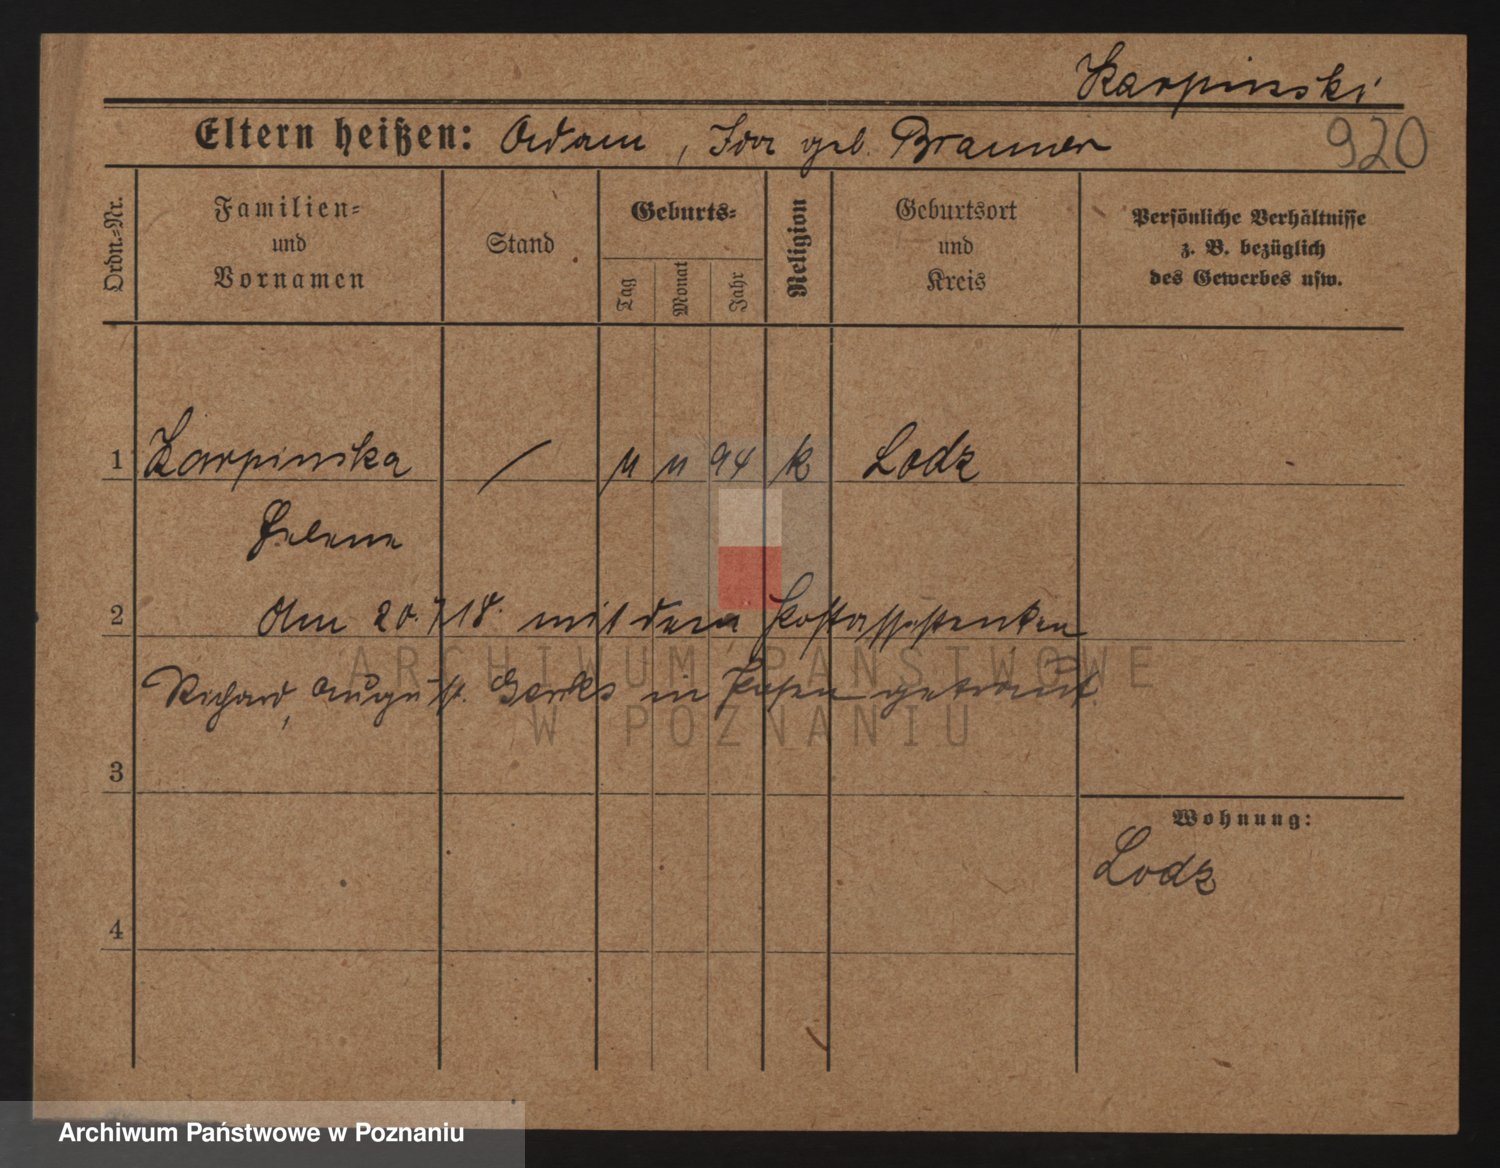 Karpinski
Eltern heißen: Adam, Ida geb. Brauner
920
Ordn.-Nr.
Familien-
und
Vornamen
Stand
Geburts-
Tag
Monat
Jahr
Religion
Geburtsort
und
Kreis
Persönliche Verhältnisse
z. B. bezüglich
des Gewerbes usw.
1 Karpinska / 11 11 94 k Lodz
Helene
2 Am 20.7.18. mit dem Postassistenten
Richard, August in Posen getraut.
3
Wohnung:
Lodz
4
ARCHIWUM PAŃSTWOWE
W POZNANIU
Archiwum Państwowe w Poznaniu